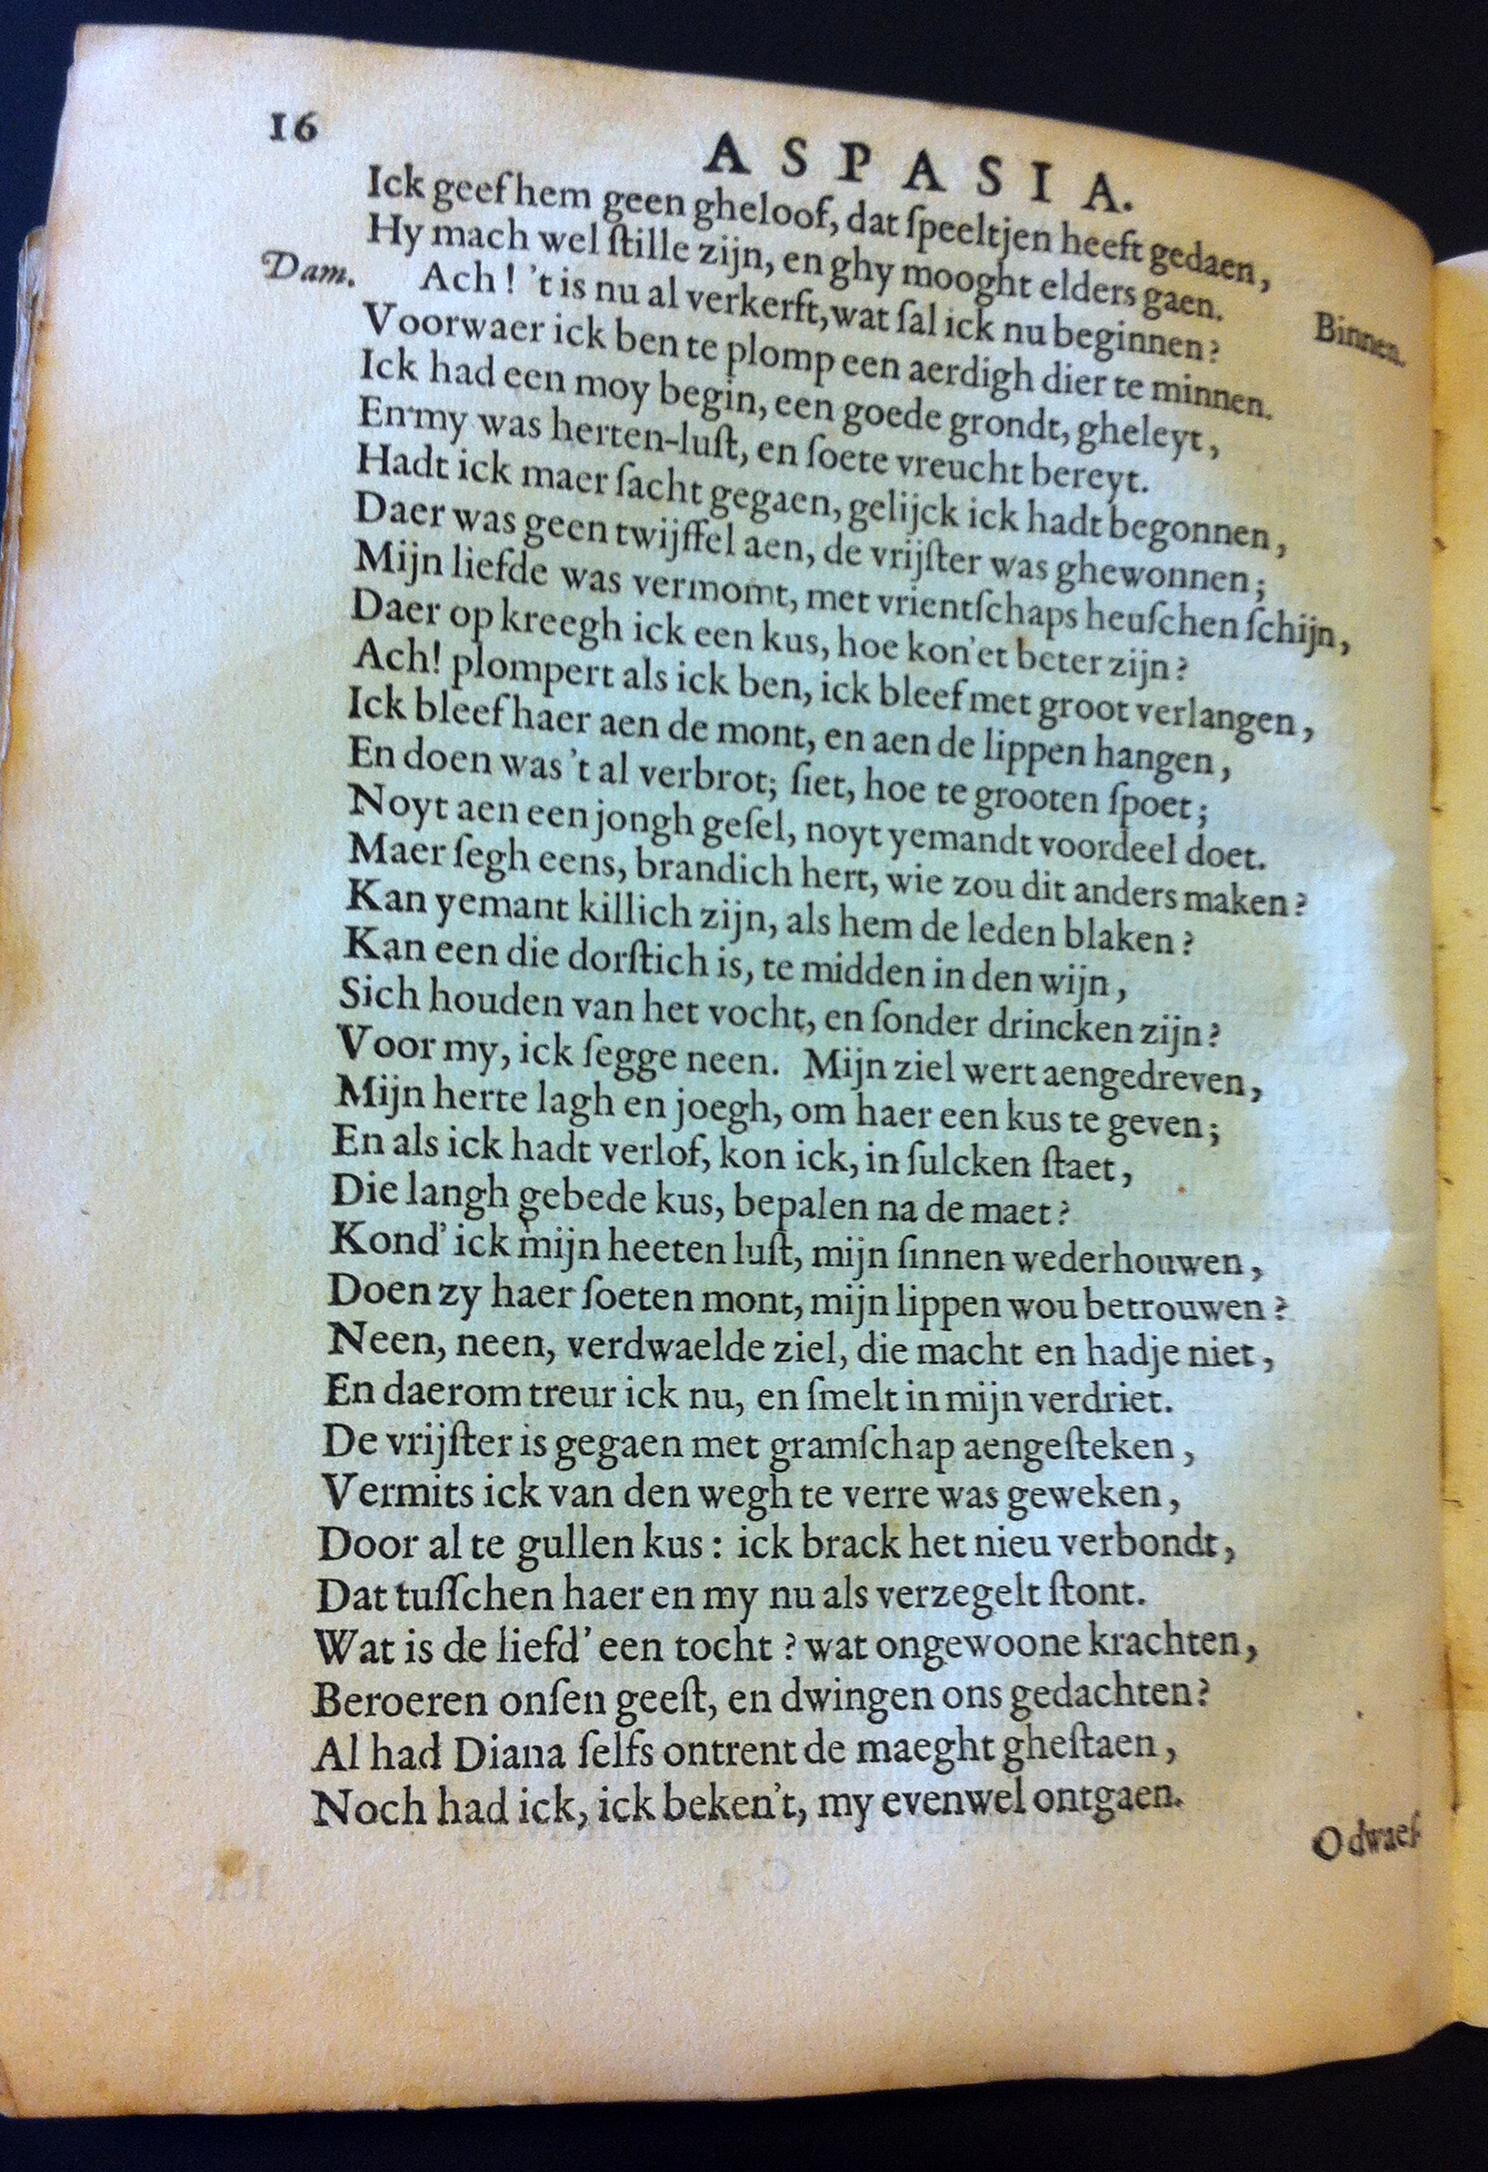 16
ASPASIA.
Ick geef hem geen gheloof, dat ſpeeltjen heeft gedaen,
Hy mach wel ſtille zijn, en ghy mooght elders gaen. Binnen.
Dam. Ach! 't is nu al verkerft, wat ſal ick nu beginnen?
Voorwaer ick ben te plomp een aerdigh dier te minnen.
Ick had een moy begin, een goede grondt, gheleyt,
En my was herten-luſt, en ſoete vreucht bereyt.
Hadt ick maer ſacht gegaen, gelijck ick hadt begonnen,
Daer was geen twijffel aen, de vrijſter was ghewonnen;
Mijn liefde was vermomt, met vrientſchaps heuſchen ſchijn,
Daer op kreegh ick een kus, hoe kon'et beter zijn?
Ach! plompert als ick ben, ick bleef met groot verlangen,
Ick bleef haer aen de mont, en aen de lippen hangen,
En doen was 't al verbrot; ſiet, hoe te grooten ſpoet;
Noyt aen een jongh geſel, noyt yemandt voordeel doet.
Maer ſegh eens, brandich hert, wie zou dit anders maken?
Kan yemant killich zijn, als hem de leden blaken?
Kan een die dorſtich is, te midden in den wijn,
Sich houden van het vocht, en ſonder drincken zijn?
Voor my, ick ſegge neen. Mijn ziel wert aengedreven,
Mijn herte lagh en joegh, om haer een kus te geven;
En als ick hadt verlof, kon ick, in ſulcken ſtaet,
Die langh gebede kus, bepalen na de maet?
Kond' ick mijn heeten luſt, mijn ſinnen wederhouwen,
Doen zy haer ſoeten mont, mijn lippen wou betrouwen?
Neen, neen, verdwaelde ziel, die macht en hadje niet,
En daerom treur ick nu, en ſmelt in mijn verdriet.
De vrijſter is gegaen met gramſchap aengeſteken,
Vermits ick van den wegh te verre was geweken,
Door al te gullen kus: ick brack het nieu verbondt,
Dat tuſſchen haer en my nu als verzegelt ſtont.
Wat is de liefd' een tocht? wat ongewoone krachten,
Beroeren onſen geeſt, en dwingen ons gedachten?
Al had Diana ſelfs ontrent de maeght gheſtaen,
Noch had ick, ick beken't, my evenwel ontgaen.
O dwaeſ-